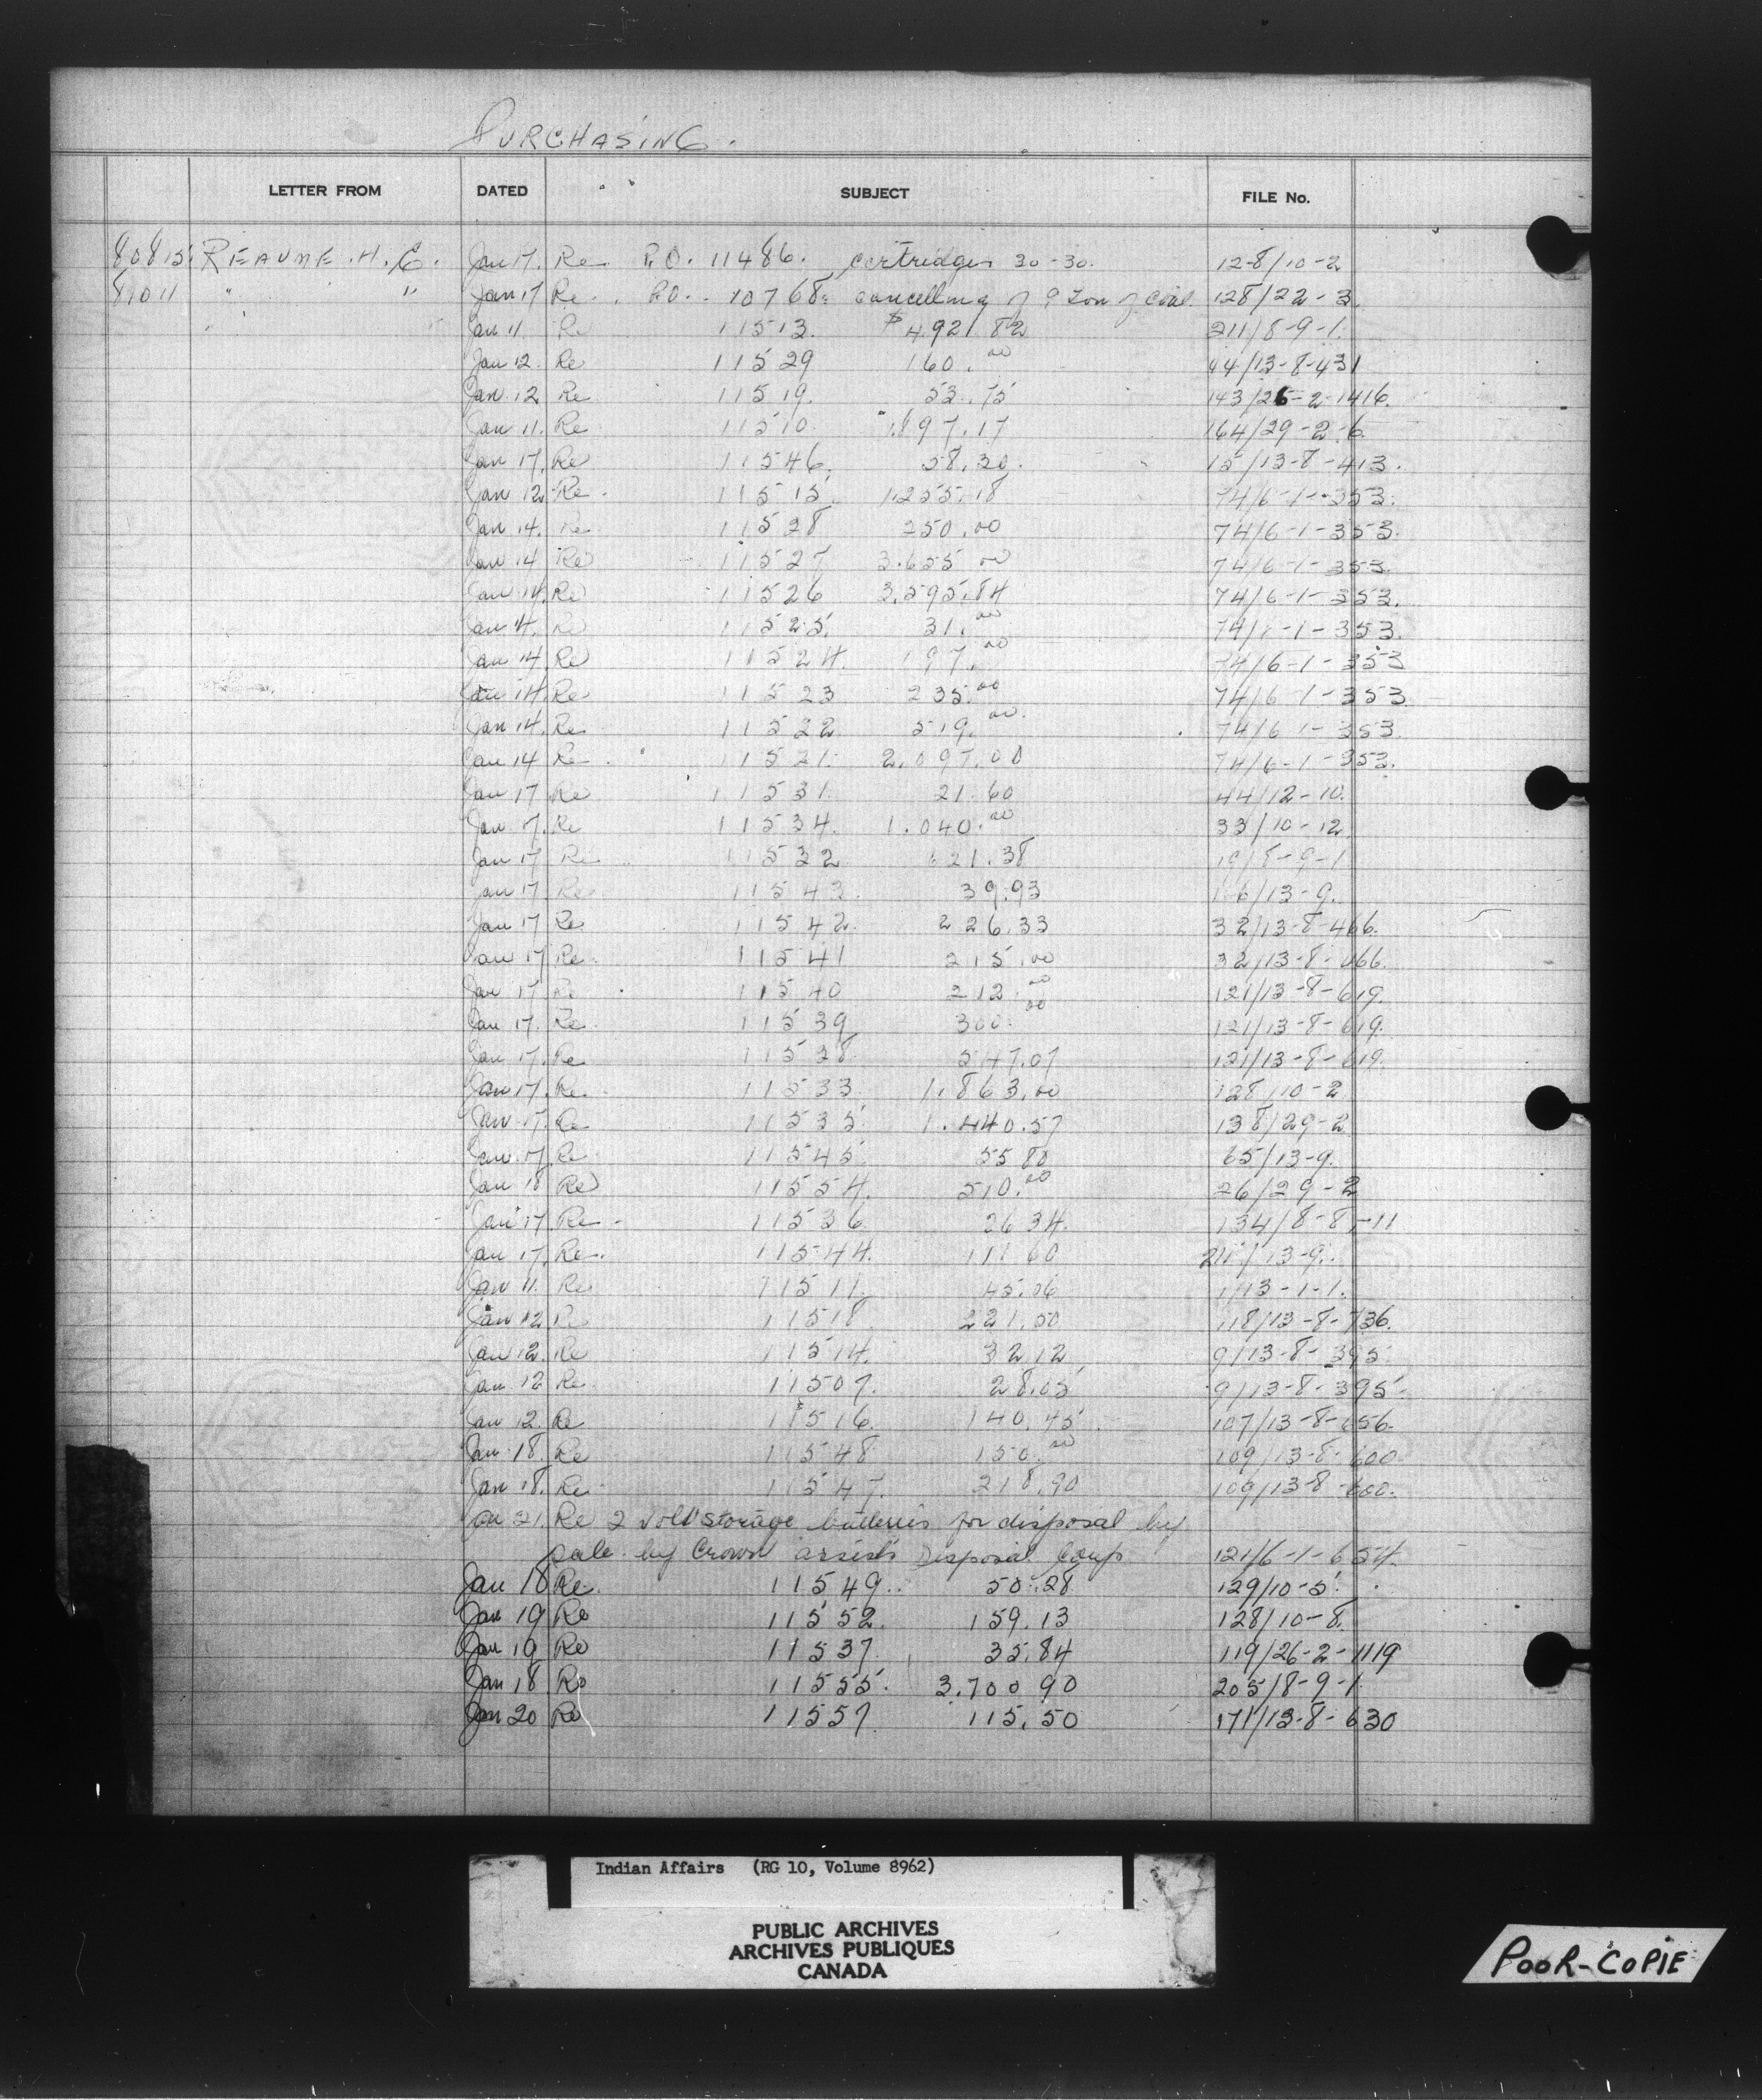 PURCHASING.
LETTER FROM DATED SUBJECT FILE No.
80815. REAUME. H. E. Jan 17. Re P.O. 11486. cartridges 30-30. 128/10-2
81011 " " Jan 17 Re. P.O. 10768. cancelling of 9 Ton of Coal. 128/22-3
Jan 11. Re 11513. $4.921.82 211/8-9-1.
Jan 12. Re 11529 160.00 44/13-8-431
Jan 12 Re 11519. 53.75 143/26-2-1416.
Jan 11. Re 11510 1.897.17 164/29-2-6.
Jan 17. Re 11546. 58.30. 15/13-8-413.
Jan 12 Re. 11515. 1.255.18 74/6-1-353.
Jan 14. Re 11528 250.00 74/6-1-353.
Jan 14 Re 11527 3.655 00 74/6-1-353.
Jan 14. Re 11526 3.595.84 74/6-1-353.
Jan 14. Re 11525. 31.00 74/6-1-353.
Jan 14. Re 11524. 197.00 74/6-1-353
Jan 14 Re 11523 235.00 74/6-1-353
Jan 14. Re 11522 519.00. 74/6-1-353.
Jan 14 Re. 11521. 2.097.00 74/6-1-353.
Jan 17 Re 11531. 21.60 44/12-10.
Jan 17. Re 11534. 1.040.00 33/10-12
Jan 17 Re 11532 621.38 19/8-9-1
Jan 17 Re 11543. 39.93 116/13-9.
Jan 17 Re 11542. 226.33 32/13-8-466.
Jan 17 Re. 11541 215.00 32/13-8-466.
Jan 17 Re 11540 212.00 121/13-8-619.
Jan 17. Re. 11539 300.00 121/13-8-619.
Jan 17. Re 11538. 547.07 121/13-8-619.
Jan 17. Re. 11533. 1.863.00 128/10-2
Jan 17. Re 11535. 1.440.57 138/29-2
Jan 17. Re. 11545. 55 80 65/13-9.
Jan 18 Re 11554. 510.00 26/29-2
Jan 17 Re. 11536. 26 34. 134/8-8-11
Jan 17. Re. 11544. 111 60 211/13-9.
Jan 11. Re 11511. 45.06 1/13-1-1.
Jan 12 Re 11518. 221.50 118/13-8-736.
Jan 12. Re 11514. 32 12 9/13-8-395.
Jan 12 Re. 11507. 28.05 9/13-8-395.
Jan 12. Re 11516. 140.45. 107/13-8-656.
Jan 18. Re 11548 150.00 109/13-8-600.
Jan 18. Re. 11547. 218.90 109/13-8-600.
Jan 21. Re 2 volt storage batteries for disposal by
sale by Crown assets Disposal Corp 121/6-1-654.
Jan 18 Re. 11549. 50.28 129/10-5.
Jan 19 Re 11552. 159.13 128/10-8.
Jan 19 Re 11537. 35.84 119/26-2-1119
Jan 18. Re 11555. 3.700 90 205/8-9-1.
Jan 20 Re 11557. 115.50 171/13-8-630
Indian Affairs (RG 10, Volume 8962)
PUBLIC ARCHIVES
ARCHIVES PUBLIQUES
CANADA
POOR-COPIE